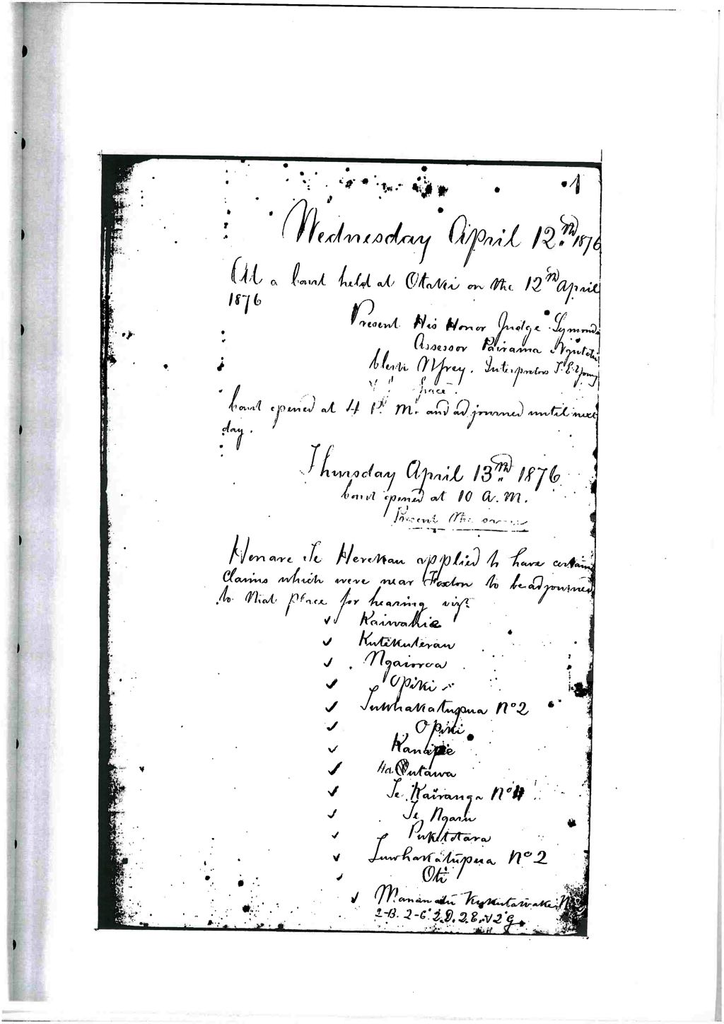 1
Wednesday April 12.th 1876
At a Court held at Otaki on the 12th April
1876
Present His Honor Judge Symonds
Assessor Pairama
Clerk Interpreter T. E. Young
Court opened at 4 P. M. and adjourned until next
day.
Thursday April 13.th 1876
Court opened at 10 A. M.
Present the
Henare Te Herekau applied to have certain
Claims which were near Foxton to be adjourned
to that place for hearing viz.
Kaiwahie
Kutikuterau
Ngaioroa
Opiki
Tuwhakatupua No 2
Opiki
Kanape
Outawa
Te Kairanga No
Te Ngaru
Puketotara
Tuwhakatupua No 2
Oti
Manawatu Kukutauaki No
2-B. 2-C 2.D. 2.E. 2g.